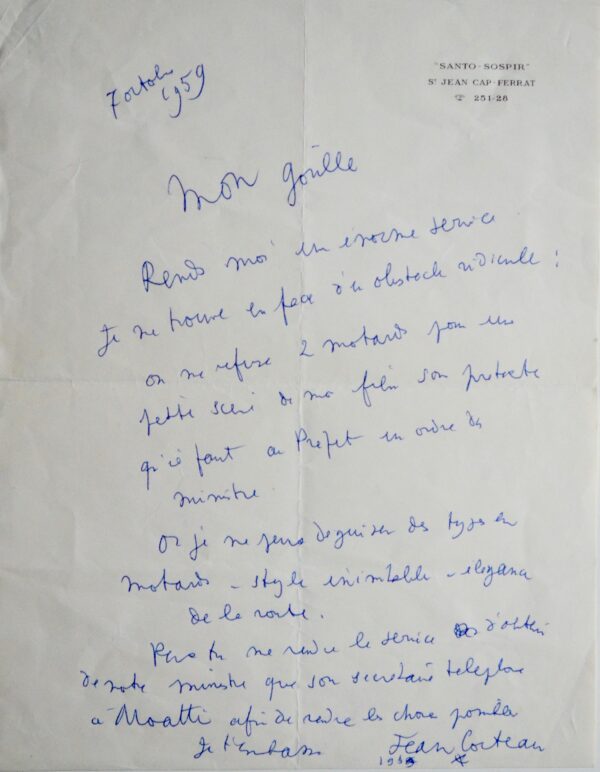 "SANTO-SOSPIR"
ST JEAN CAP-FERRAT
☎ 251-28
7 octobre
1959
Mon
Rends moi un enorme service
Je me trouve en face d'un obstacle ridicule :
on me refuse 2 motards pour une
petite scene de mon film sous pretexte
qu'il faut au Prefet un ordre du
ministre.
Or je ne peux deguiser des types en
motards - style inimitable - elegance
de la route.
Peux tu me rendre le service d'obtenir
de notre ministre que son secretaire telephone
à Moatti afin de rendre la chose possible
Je t'embrasse Jean Cocteau
1959 *